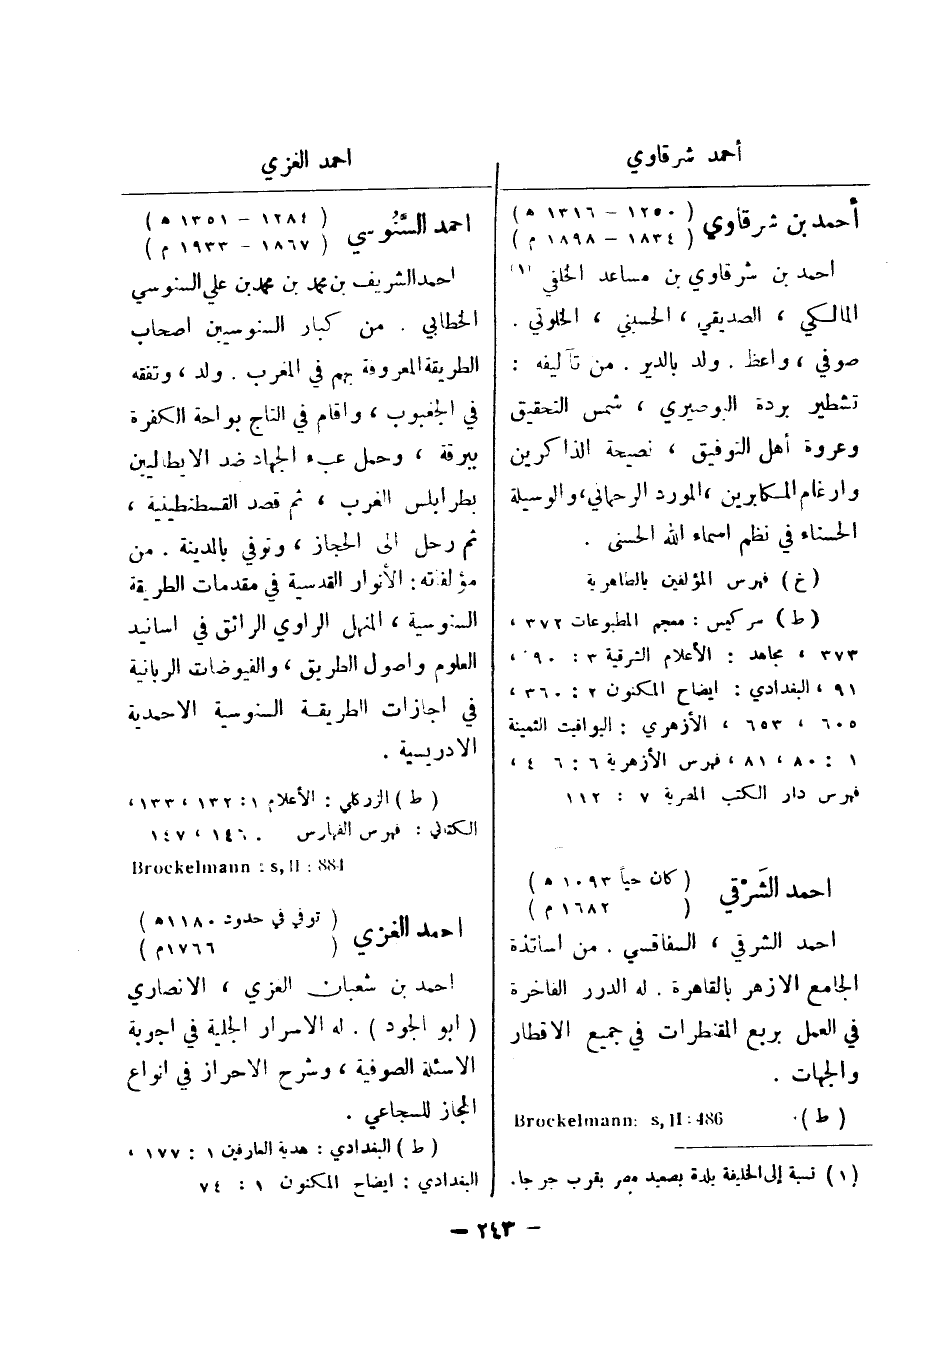 أحمد شرقاوي
أحمد بن شرقاوي ( ١٢٥٠ – ١٣١٦ ه )
( ١٨٣٤ – ١٨٩٨ م )
احمد بن شرقاوي بن مساعد الخلفي (١)
المالكي ، الصديقي ، الحسيني ، الخلوتي .
صوفي ، واعظ . ولد بالدير . من تآليفه :
تشطير بردة البوصيري ، شمس التحقيق
وعروة أهل التوفيق ، نصيحة الذاكرين
وارغام المكابرين ، المورد الرحماني ، والوسيلة
الحسناء في نظم اسماء الله الحسنى .
( خ ) فهرس المؤلفين بالظاهرية
( ط ) سركيس : معجم المطبوعات ٣٧٢ ،
٣٧٣ ، مجاهد : الأعلام الشرقية ٣ : ٩٠ ،
٩١ ، البغدادي : ايضاح المكنون ٢ : ٣٦٠ ،
٦٠٥ ، ٦٥٣ ، الأزهري : اليواقيت الثمينة
١ : ٨٠ ، ٨١ ، فهرس الأزهرية ٦ : ٦٤ ،
فهرس دار الكتب المصرية ٧ : ١١٢
احمد الشَرْقي ( كان حياً ١٠٩٣ ه )
( ١٦٨٢ م )
احمد الشرقي ، السفاقسي . من اساتذة
الجامع الازهر بالقاهرة . له الدرر الفاخرة
في العمل بربع المقنطرات في جميع الاقطار
والجهات .
( ط ) . Brockelmann: s, II : 486
(١) نسبة إلى الخليفة بلدة بصعيد مصر بقرب جرجا .
احمد الغزي
احمد السَّنُوسي ( ١٢٨٤ – ١٣٥١ ه )
( ١٨٦٧ – ١٩٣٣ م )
احمد الشريف بن محمد بن محمد بن علي السنوسي
الخطابي . من كبار السنوسيين اصحاب
الطريقة المعروفة بهم في المغرب . ولد ، وتفقه
في الجغبوب ، واقام في التاج بواحة الكفرة
ببرقة ، وحمل عبء الجهاد ضد الايطاليين
بطرابلس الغرب ، ثم قصد القسطنطينية ،
ثم رحل الى الحجاز ، وتوفي بالمدينة . من
مؤلفاته : الأنوار القدسية في مقدمات الطريقة
السنوسية ، المنهل الراوي الرائق في اسانيد
العلوم واصول الطريق ، والفيوضات الربانية
في اجازات الطريقة السنوسية الاحمدية
الادريسية .
( ط ) الزركلي : الأعلام ١ : ١٣٢ ، ١٣٣ ،
الكتاني : فهرس الفهارس . ١٤٦ ، ١٤٧
Brockelmann : s, II : 884
احمد الغزي ( توفي في حدود ١١٨٠ ه )
( ١٧٦٦ م )
احمد بن شعبان الغزي ، الانصاري
( ابو الجود ) . له الاسرار الجلية في اجوبة
الاسئلة الصوفية ، وشرح الاحراز في انواع
المجاز للسجاعي .
( ط ) البغدادي : هدية العارفين ١ : ١٧٧ ،
البغدادي : ايضاح المكنون ١ : ٧٤
– ٢٤٣ –